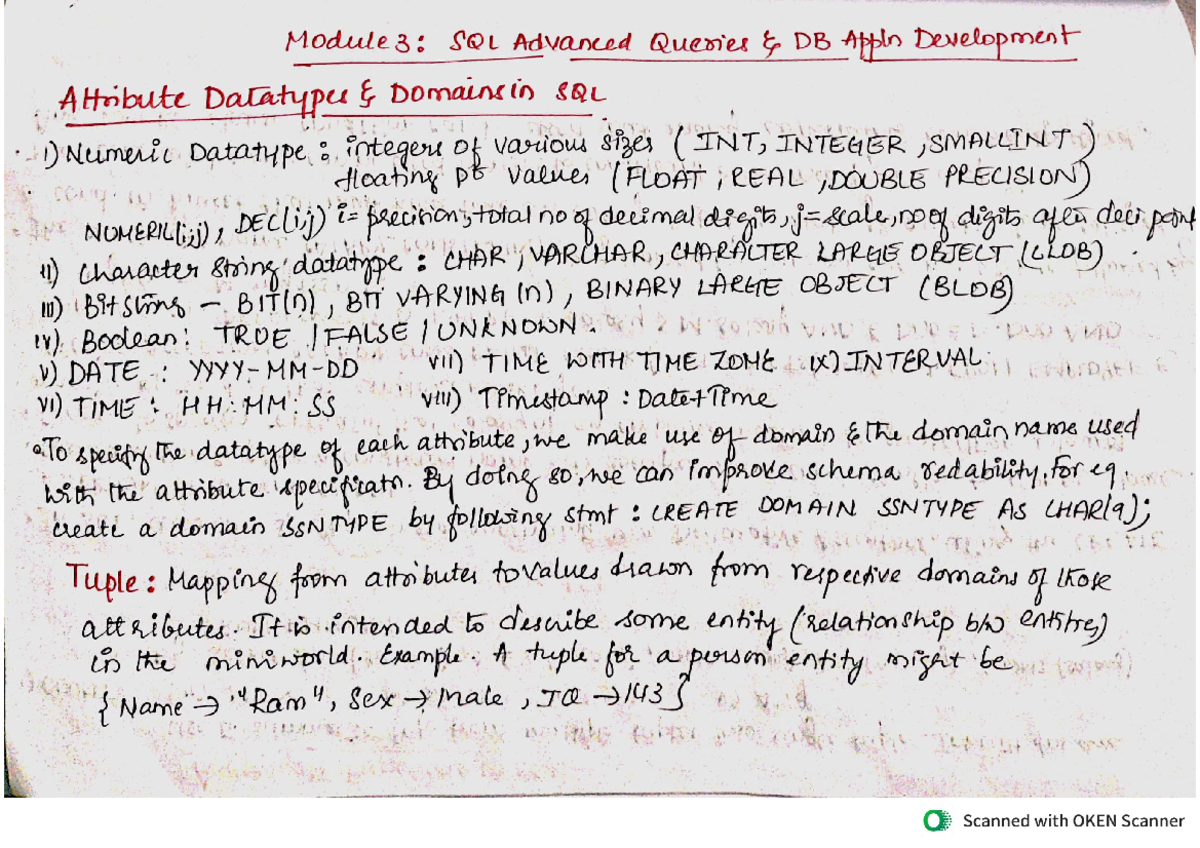 Module 3: SQL Advanced Queries & DB Appln Development
Attribute Datatypes & Domains in SQL
i) Numeric Datatype : integers of various sizes ( INT, INTEGER , SMALLINT )
floating pt values ( FLOAT , REAL , DOUBLE PRECISION)
NUMERIC(i,j), DEC(i,j) i= precision, total no of decimal digits, j= scale, no of digits after deci point
ii) character string datatype : CHAR , VARCHAR , CHARACTER LARGE OBJECT (CLOB)
iii) Bit Strings - BIT(n) , BIT VARYING (n) , BINARY LARGE OBJECT (BLOB)
iv) Boolean: TRUE / FALSE / UNKNOWN .
v) DATE : YYYY-MM-DD vii) TIME WITH TIME ZONE IX) INTERVAL
vi) TIME : HH:MM:SS viii) Timestamp : Date+Time
To specify the datatype of each attribute, we make use of domain & the domain name used
with the attribute specificatn. By doing so, we can improve schema redability. for eg.
create a domain SSNTYPE by following stmt : CREATE DOMAIN SSNTYPE AS CHAR(9);
Tuple : Mapping from attributes to values drawn from respective domains of those
attributes. It is intended to describe some entity (relationship b/w entitres)
in the miniworld. Example. A tuple for a person entity might be
{ Name → "Ram", Sex → Male , IQ → 143 }
Scanned with OKEN Scanner